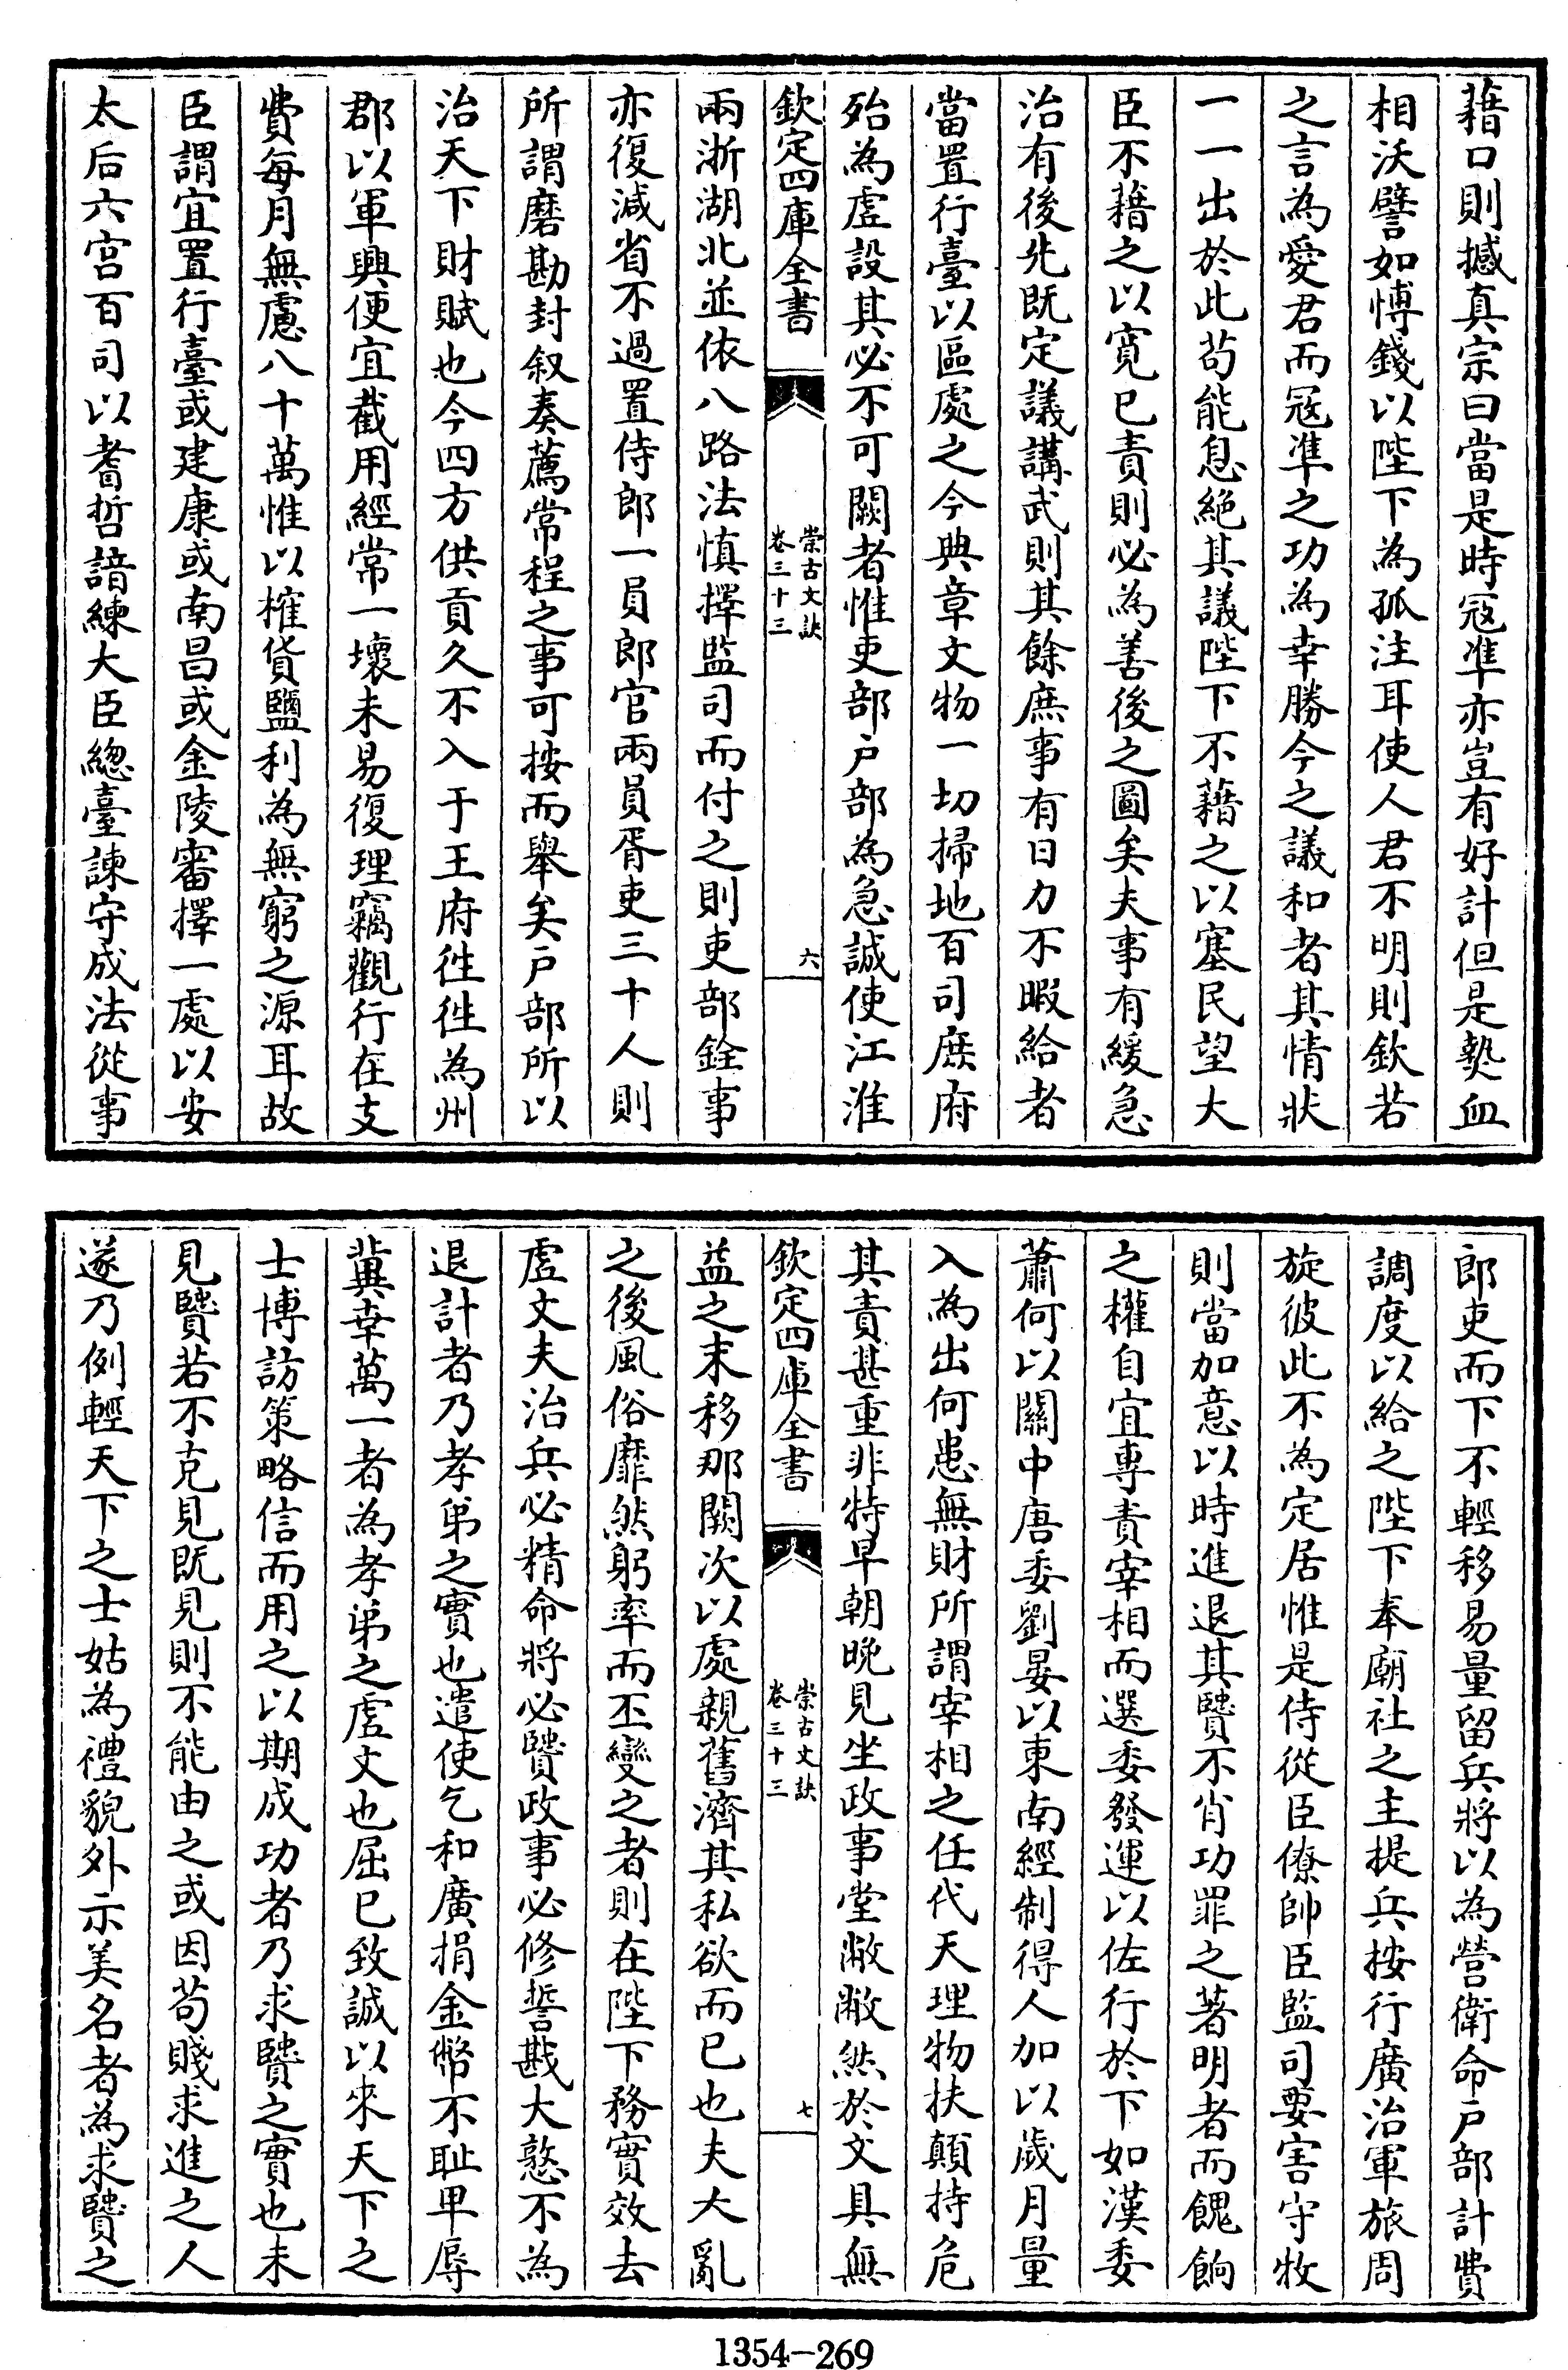 藉口則撼真宗曰當是時冦凖亦豈有好計但是𤍠血
相沃譬如愽錢以陛下為孤注耳使人君不明則欽若
之言為愛君而冦凖之功為幸勝今之議和者其情狀
一一出於此茍能息絶其議陛下不藉之以塞民望大
臣不藉之以寛已責則必為善後之圖矣夫事有緩急
治有後先既定議講武則其餘庶事有日力不暇給者
當置行臺以區處之今典章文物一切掃地百司庶府
殆為虚設其必不可闕者惟吏部戶部為急誠使江淮
欽定四庫全書
崇古文訣
卷三十三
六
兩浙湖北並依八路法慎擇監司而付之則吏部銓事
亦復減省不過置侍郎一員郎官兩員胥吏三十人則
所謂磨勘封叙奏薦常程之事可按而舉矣戶部所以
治天下財賦也今四方供貢久不入于王府往往為州
郡以軍興便宜截用經常一壞未易復理竊觀行在支
費每月無慮八十萬惟以㩁貨鹽利為無窮之源耳故
臣謂宜置行臺或建康或南昌或金陵審擇一處以安
太后六宫百司以耆哲諳練大臣緫臺諫守成法從事
郎吏而下不輕移易量留兵將以為營衛命戶部計費
調度以給之陛下奉廟社之主提兵按行廣治軍旅周
旋彼此不為定居惟是侍從臣僚帥臣監司要害守牧
則當加意以時進退其賢不肖功罪之著明者而餽餉
之權自宜專責宰相而選委發運以佐行於下如漢委
蕭何以關中唐委劉晏以東南經制得人加以歲月量
入為出何患無財所謂宰相之任代天理物扶顛持危
其責甚重非特早朝晚見坐政事堂敝敝然於文具無
欽定四庫全書
崇古文訣
卷三十三
七
益之末移那闕次以處親舊濟其私欲而已也夫大亂
之後風俗靡然躬率而丕變之者則在陛下務實效去
虚文夫治兵必精命將必賢政事必修誓戡大憝不為
退計者乃孝弟之實也遣使乞和廣捐金幣不耻卑辱
冀幸萬一者為孝弟之虚文也屈已致誠以來天下之
士博訪策略信而用之以期成功者乃求賢之實也未
見賢若不克見既見則不能由之或因茍賤求進之人
遂乃例輕天下之士姑為禮貌外示美名者為求賢之
1354-269